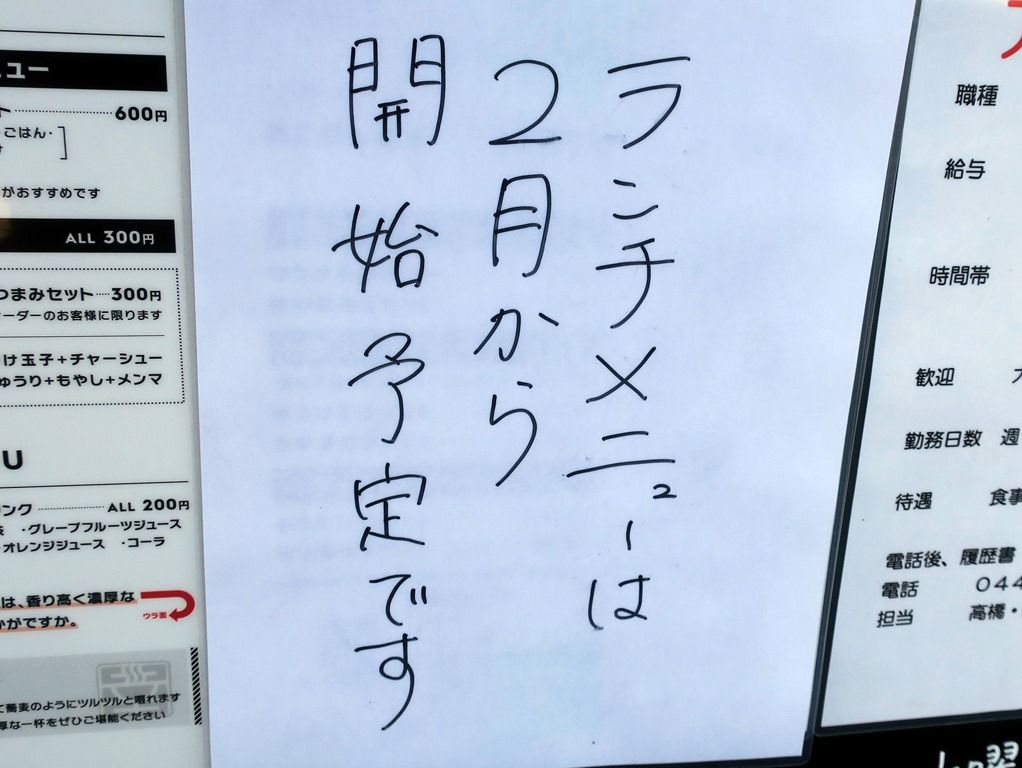 ラーンチメニューは
2月から
開始予定です
ュー
600円
ごはん・
がおすすめです
ALL 300円
つまみセット 300円
ーダーのお客様に限ります
け玉子+チャーシュー
ゅうり+もやし+メンマ
U
リンク ALL 200円
・グレープフルーツジュース
オレンジジュース ・コーラ
は、香り高く濃厚な
かがですか。
ウラ面
て蕎麦のようにツルツルと啜れます
厚な一杯をぜひご堪能ください
職種
給与
時間帯
歓迎
勤務日数 週
待遇 食事
電話後、履歴書
電話 044
担当 高橋・
曜